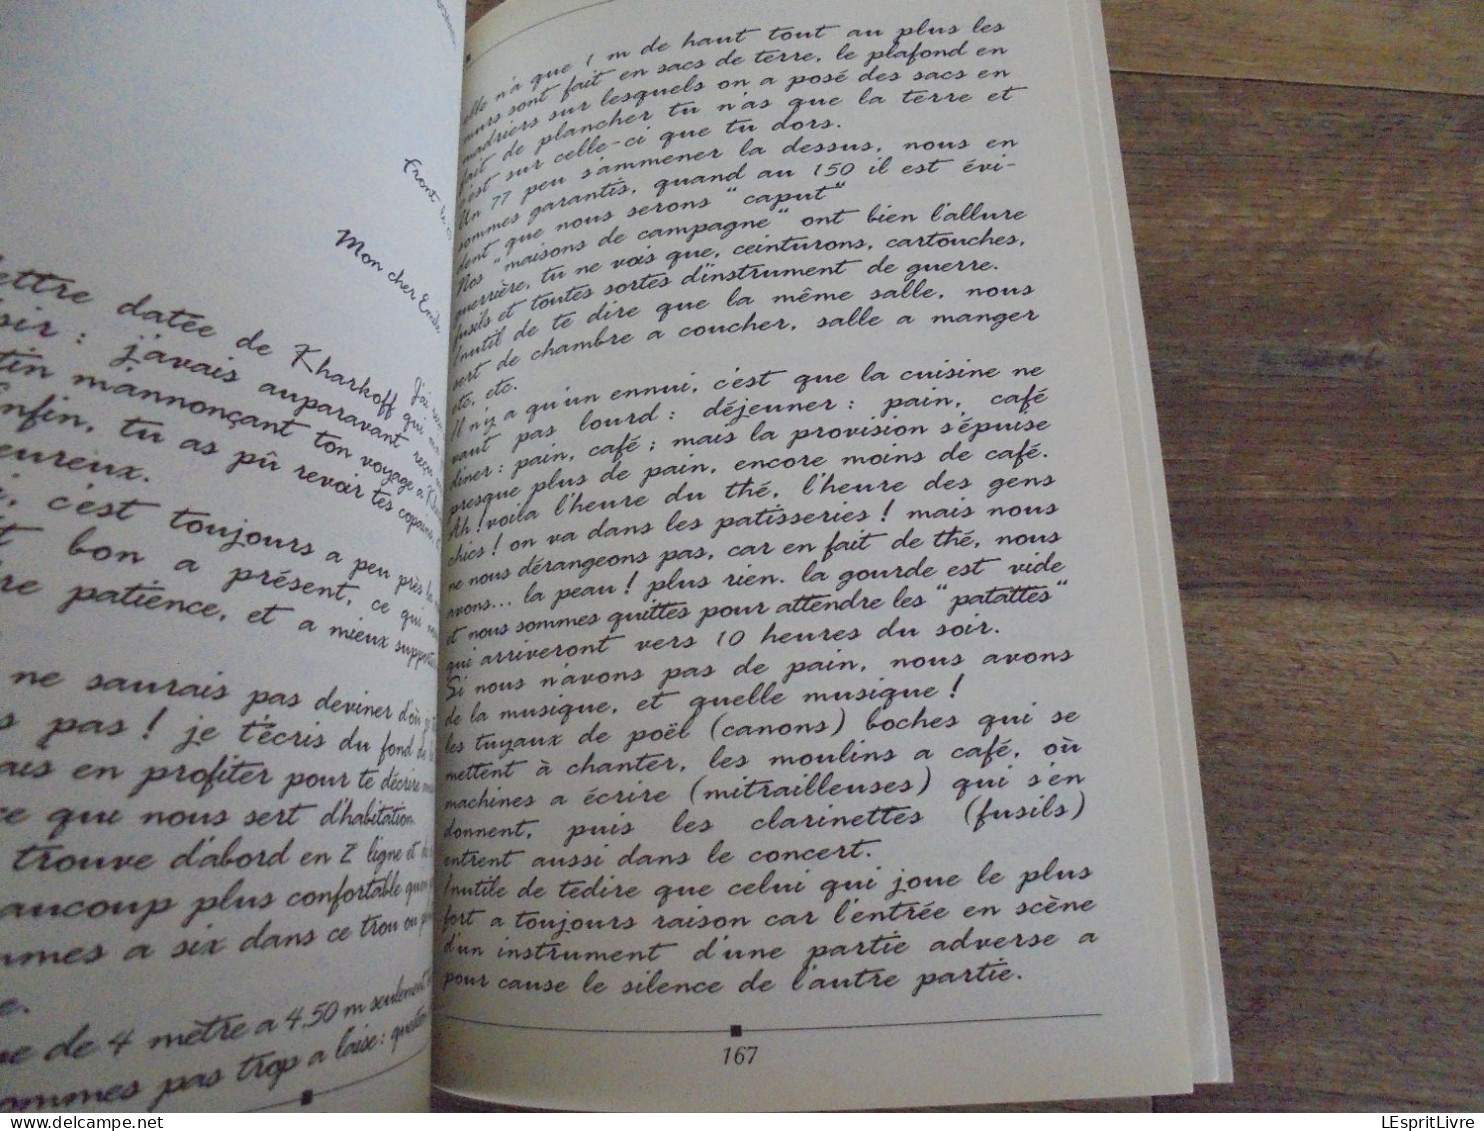 Front
Mon cher Emile,
J'ai
lettre datée de Kharkoff qui m'a
sir : j'avais auparavant reçu
tin m'annonçant ton voyage a
nfin, tu as pû revoir tes copains,
eureux.
c'est toujours a peu près la
bon a présent, ce qui
re patience, et a mieux
ne saurais pas deviner d'où
s pas ! je t'écris du fond de
ais en profiter pour te décrire
ce que nous sert d'habitation.
trouve d'abord en 2 ligne et
aucoup plus confortable
mmes a six dans ce trou ou
e.
ne de 4 mètre a 4.50 m seulement
ommes pas trop a l'aise :
elle n'a que 1 m de haut tout au plus les
murs sont fait en sacs de terre, le plafond en
madriers sur lesquels on a posé des sacs en
fait de plancher tu n'as que la terre et
c'est sur celle-ci que tu dors.
Un 77 peu s'ammener la dessus, nous en
sommes garantis, quand au 150 il est évi-
dent que nous serons "caput"
Nos "maisons de campagne" ont bien l'allure
guerrière, tu ne vois que, ceinturons, cartouches,
fusils et toutes sortes d'instrument de guerre.
Inutil de te dire que la même salle, nous
sert de chambre a coucher, salle a manger
etc, etc.
Il n'y a qu'un ennui, c'est que la cuisine ne
vaut pas lourd : déjeuner : pain, café
diner : pain, café ; mais la provision s'épuise
presque plus de pain, encore moins de café.
Ah ! voila l'heure du thé, l'heure des gens
chics ! on va dans les patisseries ! mais nous
ne nous dérangeons pas, car en fait de thé, nous
avons... la peau ! plus rien. la gourde est vide
et nous sommes quittes pour attendre les "patattes"
qui arriveront vers 10 heures du soir.
Si nous n'avons pas de pain, nous avons
de la musique, et quelle musique !
les tuyaux de poël (canons) boches qui se
mettent à chanter, les moulins a café, où
machines a écrire (mitrailleuses) qui s'en
donnent, puis les clarinettes (fusils)
entrent aussi dans le concert.
Inutile de tedire que celui qui joue le plus
fort a toujours raison car l'entrée en scène
d'un instrument d'une partie adverse a
pour cause le silence de l'autre partie.
167
LEspritLivre